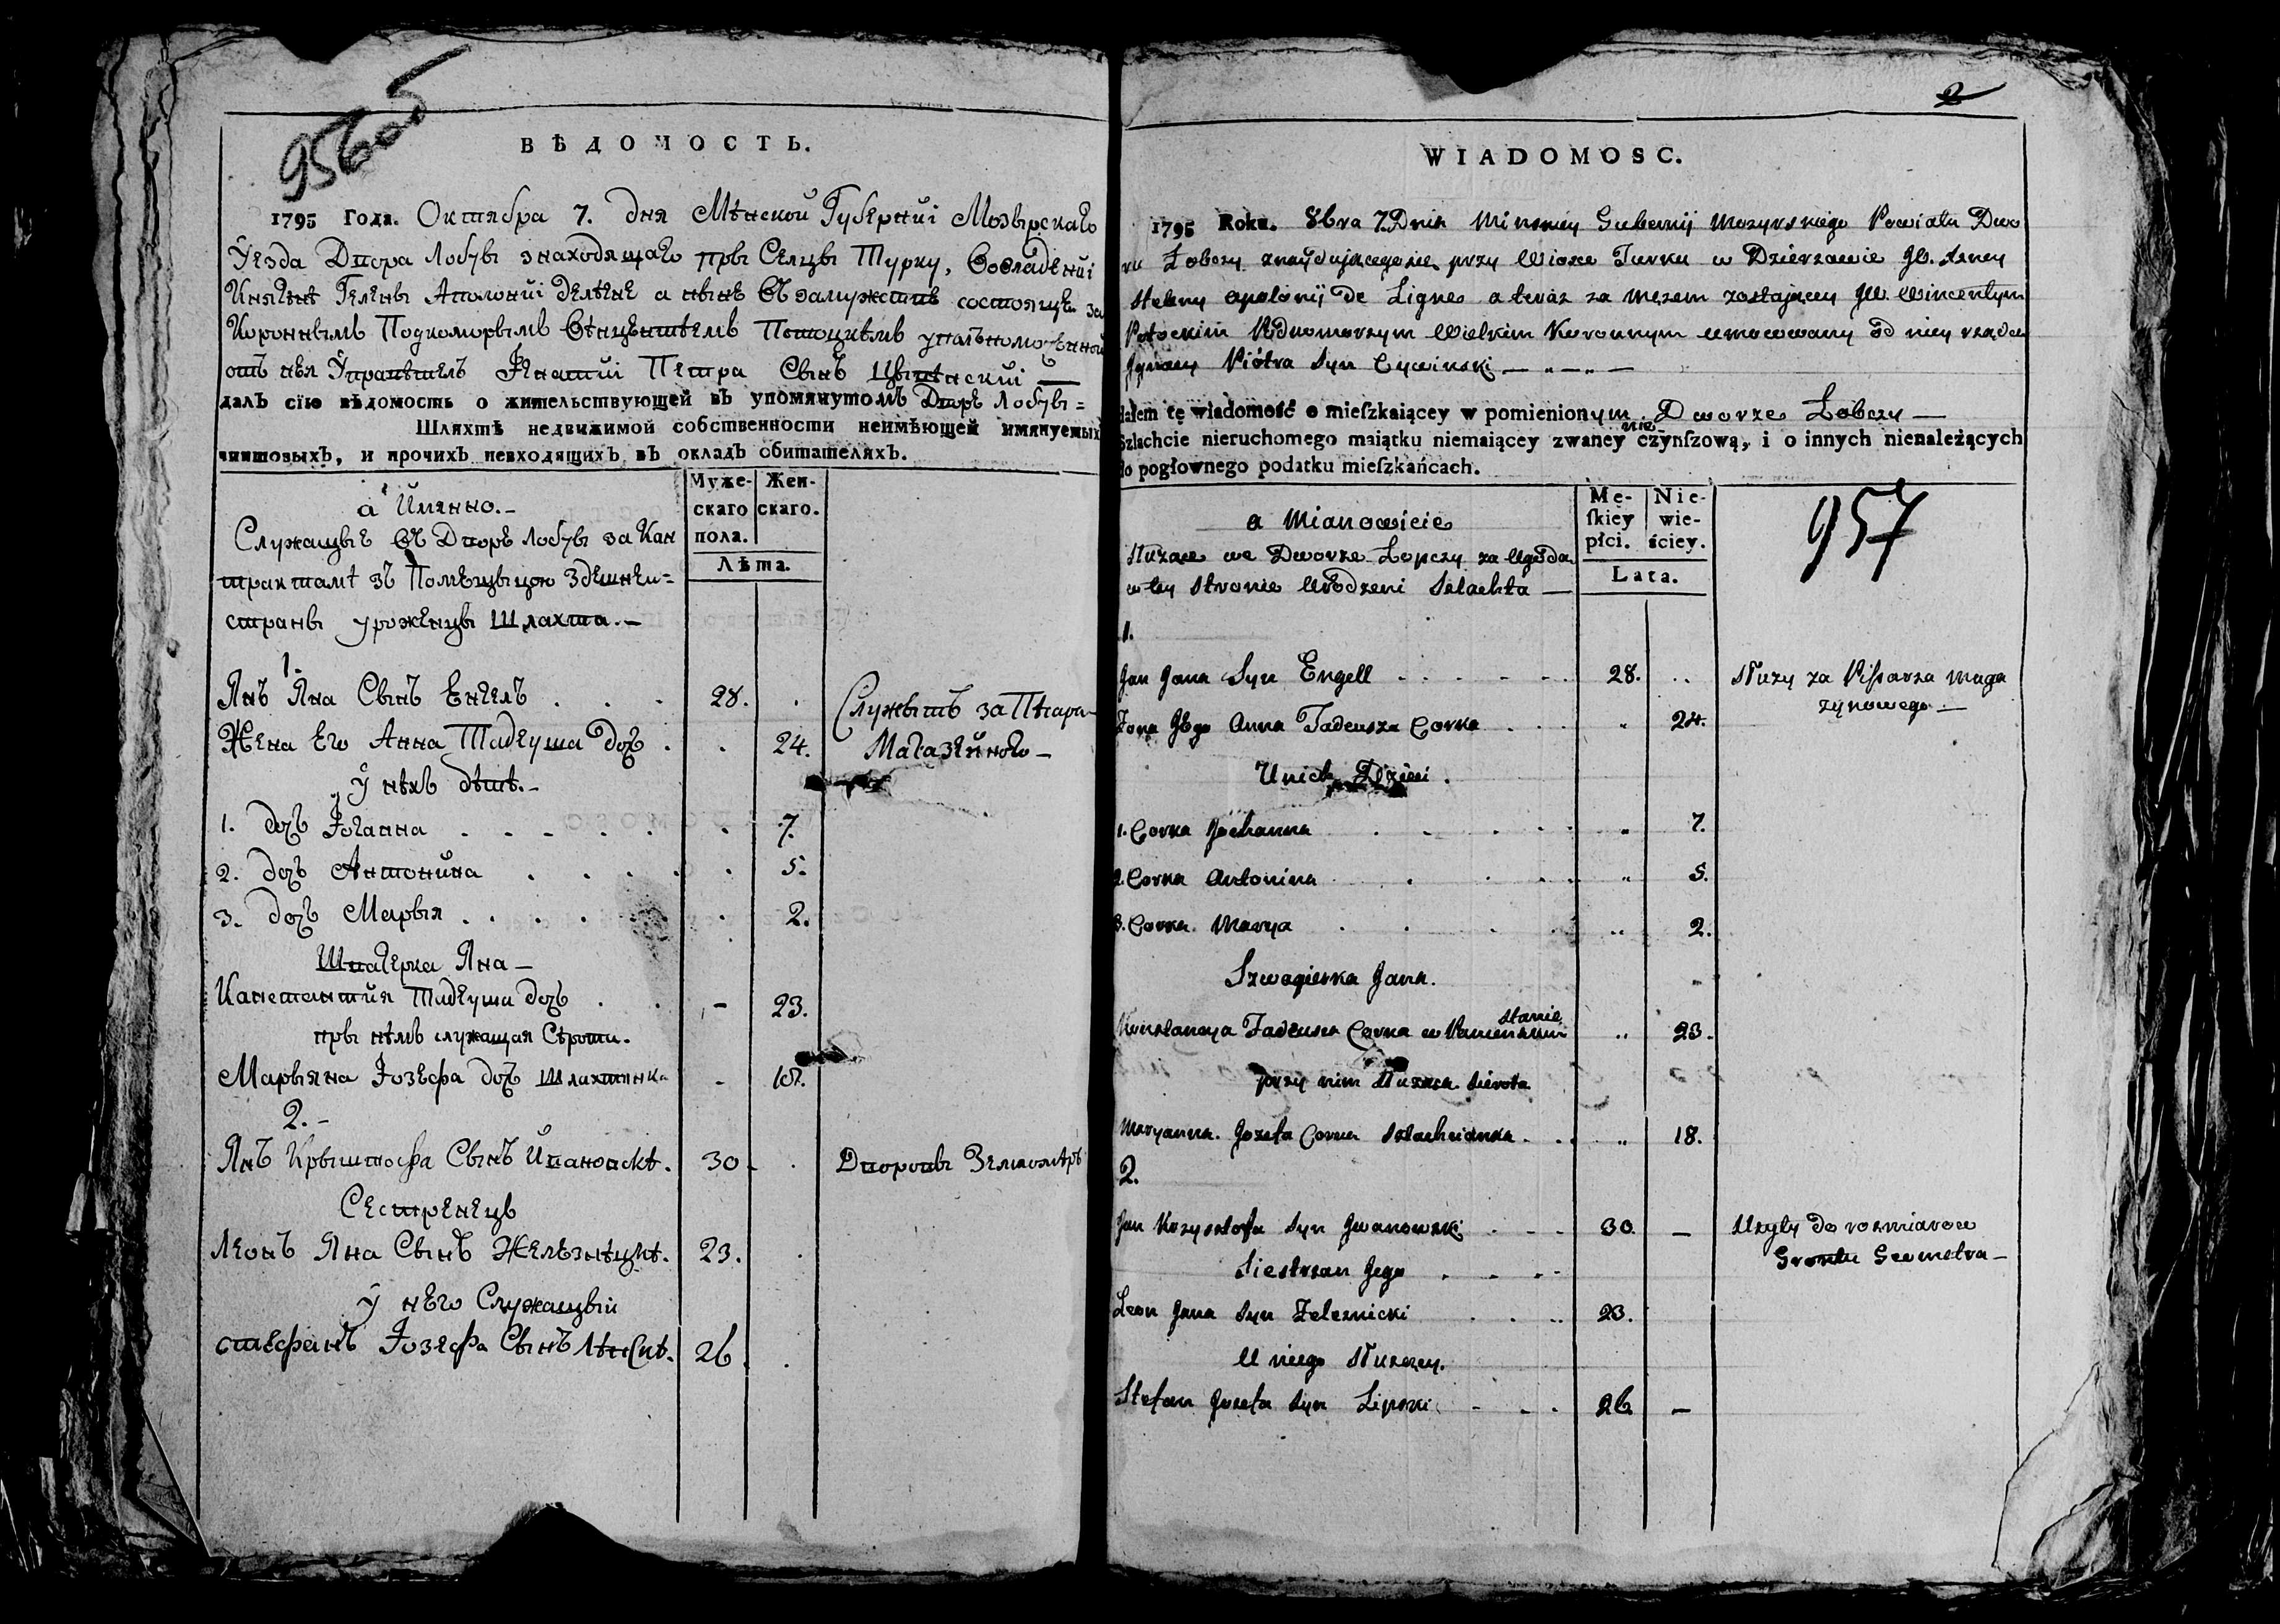 956 об
ВѢДОМОСТЬ.
1795 Года. Октября 7. дня Мѣнской Губерниі Мозырскаго
Уезда Двора Лобчы знаходящаго пры Селцы Турку, Воовладѣниі
Княгинѣ Гелены Аполониі делѣгне а ныне въ замужствѣ состоящце за
Короннымъ Подкоморымъ Вѣнценшѣмъ Потоцкѣмъ уполъномоченной
отъ нея Управѣтель Игнатий Петра Сынъ Цывѣнский —
далъ сїю вѣдомость о жительствующей въ упомянутомъ Дворѣ Лобчы =
Шляхтѣ недвижимой собственности неимѣющей имянуемыхъ
чиншовыхъ, и прочихъ невходящихъ въ окладъ обитателяхъ.
Муже- Жен-
скаго скаго.
пола.
Лѣта.
а Имянно.-
Служащые въ Дворѣ Лобчы за Кан
трактамѣ зъ Помещыцою Здешнеи=
страны уроженцы Шляхта.-
1.
Янъ Яна Сынъ Енгелъ . . . 28. . Служытъ за Пѣсара
Жена Его Анна Тадеуша дочь . . 24. Магазейного —
У нѣхъ дѣтѣ.-
1. дочь Іоганна . . . 7.
2. дочь Антонина . . . 5.
3. дочь Марыя . . . 2.
Швагерка Яна —
Канстантия Тадеуша дочь . . - 23.
пры нѣмъ служащая Сѣрота.
Марыяна Іозефа дочь Шляхтянка - 18.
2.-
Янъ Крыштофа Сынъ Ивановскѣ. 30 . Дворовы Землемѣръ
Сестренецъ
Леонъ Яна Сынъ Желѣзнѣцкѣ. 23. .
у него Служащый
Стефанъ Іозефа Сынъ Лѣпскѣ. 26 .
2
WIADOMOSC.
1795 Roku. 8bra 7. Dnia Minskiey Gubernij Mozyrskiego Powiatu Dwo
ru Łobczy znayduiącego się przy Wiosce Turku w Dzierzawie JO. Xzney
Heleny Apolonij De Ligne a teraz za męzem zostaiącey JW. Wincentym
Potockim Podkomorzym Wielkim Koronnym umocowany od niey rządca
Jgnacy Piótra Syn Cywinski — „ — „ —
dałem tę wiadomość o mieſzkaiącey w pomienionym Dworze Łobczy —
Szlachcie nieruchomego maiątku niemaiącey zwaney nie czynſzową, i o innych nienależących
do pogłownego podatku mieſzkańcach.
Mę- Nie-
ſkiey wie-
płci. ściey.
Lata.
957
a Mianowicie
Służące we Dworze Łopczy za Ugoda
w tey stronie Urodzeni Szlachta —
1.
Jan Jana Syn Engell . . . . 28. .. Służy za Pisarza maga
Zona Jego Anna Tadeusza Corka . . . „ 24. zynowego —
U nich Dzieci .
1. Corka Johanna . . . . „ 7.
2. Corka Antonina . . . . „ 5.
3. Corka Marya . . . . „ 2.
Szwagierka Jana.
Konstancya Tadeusza Corka w Panienskim stanie „ 23.
przy nim Służąca Sierota
Maryanna Jozefa Corka Szlachcianka . . . „ 18.
2.
Jan Krzysztofa Syn Jwanowski . . . 30. — Użyty do rozmiarow
Siestrzan Jego . . . Grontu Geometra —
Leon Jana Syn Zeleznicki . . . 23.
U niego Służący.
Stefan Jozefa Syn Lipski . . . 26 —